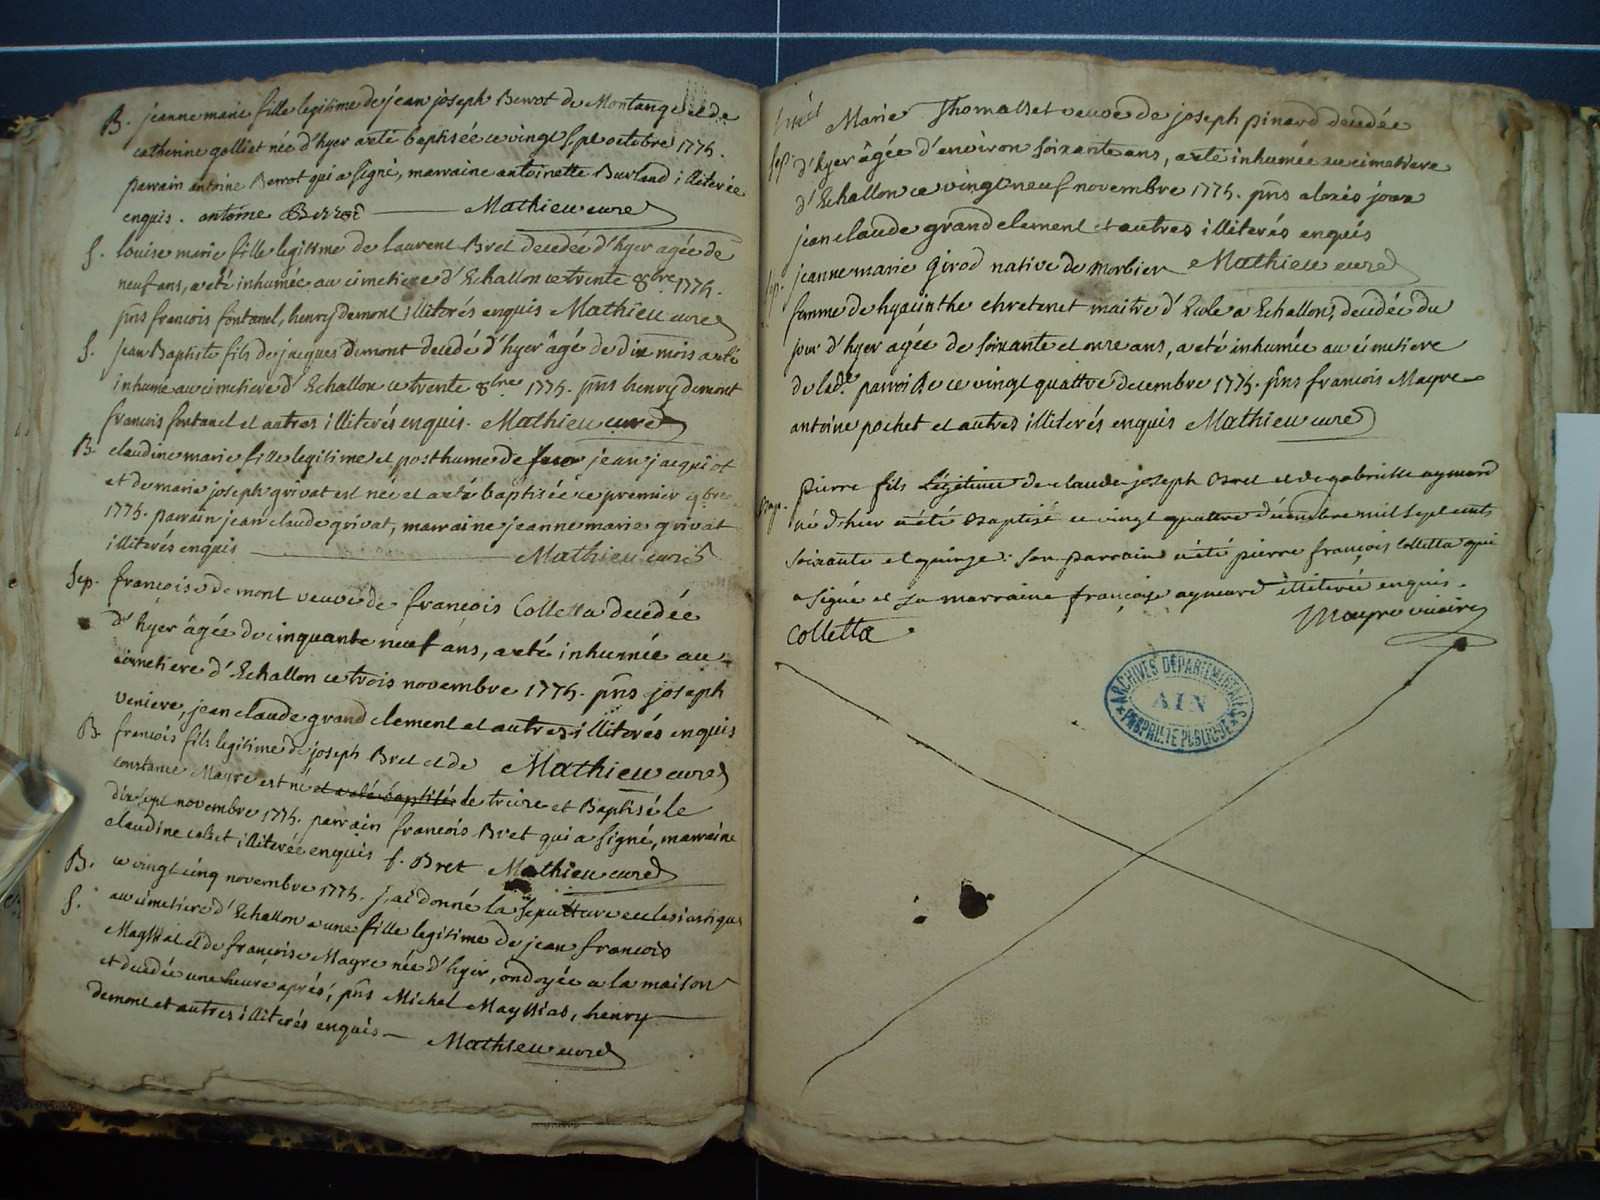 B. jeanne marie fille legitime de jean joseph Berrot de Montange et de
catherine golliet née d'hyer a eté baptisée ce vingt sept octobre 1775.
parrain antoine Berrot qui a signé, marraine antoinette Burland illiterée
enquis. antoine Berrot Mathieu curé
S. louise marie fille legitime de laurent Bret decedée d'hyer agée de
neuf ans, a eté inhumée au cimetiere d'Echallon ce trente 8bre 1775.
pñs francois fontanel, henry demont illiterés enquis Mathieu curé
S. jean Baptiste fils de jacques demont decedé d'hyer âgé de dix mois a eté
inhumé au cimetiere d'Echallon ce trente 8bre 1775. pñs henry demont
francois fontanel et autres illiterés enquis. Mathieu curé
B. claudine marie fille legitime et posthume de feu jean jacquiot
et de marie joseph grivat est née et a eté baptisée ce premier 9bre
1775. parrain jean claude grivat, marraine jeanne marie grivat
illiterés enquis Mathieu curé
Sep. francoise demont veuve de francois Colletta decedée
d'hyer âgée de cinquante neuf ans, a eté inhumée au
cimetiere d'Echallon ce trois novembre 1775. pñs joseph
veniere, jean claude grand clement et autres illiterés enquis
B. francois fils legitime de joseph Bret et de Mathieu curé
constance Mayre est né et a eté baptisé le treize et Baptisé le
dix sept novembre 1775. parrain francois Bret qui a signé, marraine
claudine illiterée enquis f. Bret Mathieu curé
B. ce vingt cinq novembre 1775. j'ai donné la sepulture ecclesiastique
S. au cimetiere d'Echallon a une fille legitime de jean francois
Mayssiat et de francoise Mayre née d'hyer, ondoyée a la maison
et decedée une heure aprés, pñs Michel Mayssiat, henry
demont et autres illiterés enquis Mathieu curé
Marie Thomasset veuve de joseph pinard decedée
Sep. d'hyer âgée d'environ soixante ans, a eté inhumée au cimetiere
d'Echallon ce vingt neuf novembre 1775. pñs alexis joux
jean claude grand clement et autres illiterés enquis
Sep. jeanne marie Girod native de morbier Mathieu curé
femme de hyacinthe chretenet maitre d'Ecole a Echallon, decedée du
jour d'hyer agée de soixante et onze ans, a eté inhumée au cimetiere
de lade. parroisse ce vingt quattre decembre 1775. pñs francois Mayre
antoine pochet et autres illiterés enquis Mathieu curé
Bap. pierre fils Légitime de claude joseph Bret et de gabrielle aymard
né d'hier a été Baptisé ce vingt quattre décembre mil sept cents
soixante et quinze. son parrain a été pierre françois Colletta qui
a signé et sa marraine françoise aymard illiterée enquis.
Colletta Mayre vicaire
ARCHIVES DÉPARTEMENTALES
AIN
PROPRIÉTÉ PUBLIQUE